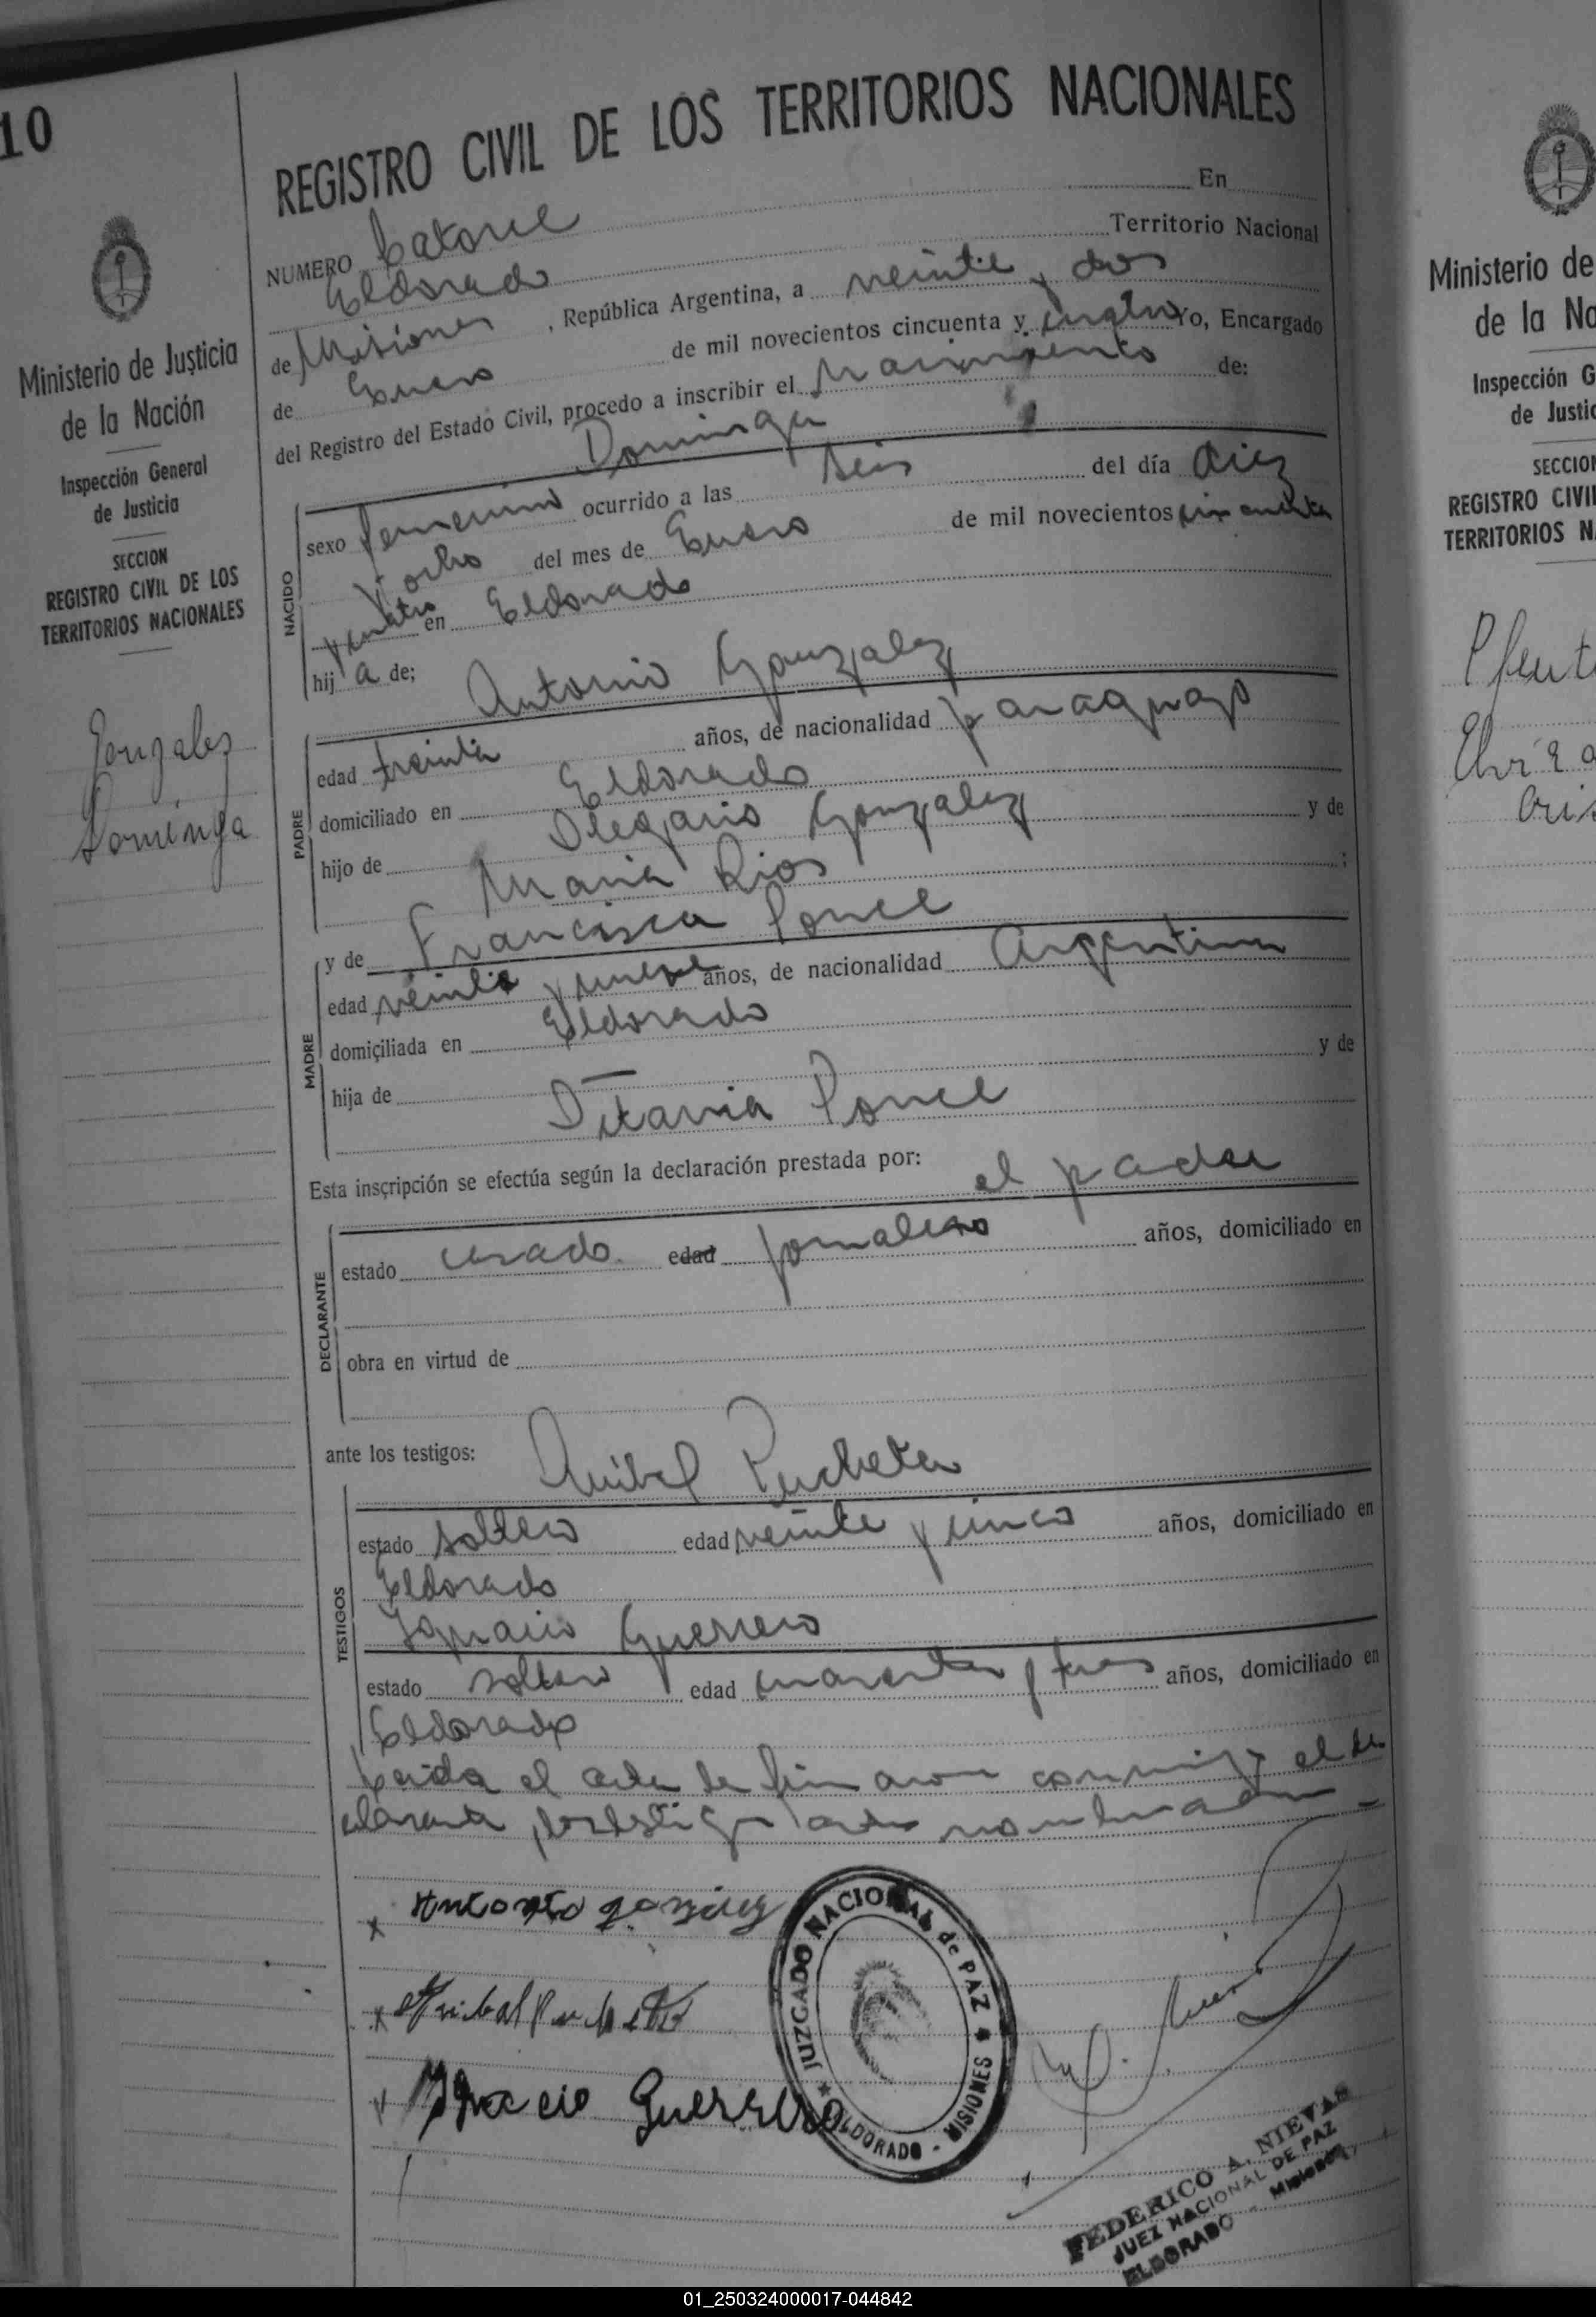 10
Ministerio de Justicia
de la Nación
Inspección General
de Justicia
SECCION
REGISTRO CIVIL DE LOS
TERRITORIOS NACIONALES
Gonzalez
Dominga
REGISTRO CIVIL DE LOS TERRITORIOS NACIONALES
NUMERO Catorce En
Eldorado Territorio Nacional
de Misiones, República Argentina, a veinte y dos
de Enero de mil novecientos cincuenta y cuatro Yo, Encargado
del Registro del Estado Civil, procedo a inscribir el Nacimiento de:
Dominga
NACIDO
sexo femenino ocurrido a las seis del día diez
y ocho del mes de Enero de mil novecientos cincuenta
y cuatro en Eldorado
hij a de;
Antonio Gonzalez
PADRE
edad treinta años, de nacionalidad paraguayo
domiciliado en Eldorado
hijo de Olegario Gonzalez y de
Maria Rios ;
y de Francisca Ponce
MADRE
edad veinte y nueve años, de nacionalidad Argentina
domiciliada en Eldorado
hija de y de
Ponce
Esta inscripción se efectúa según la declaración prestada por:
el padre
DECLARANTE
estado casado edad jornalero años, domiciliado en
obra en virtud de
ante los testigos: Anibal Pucheta
TESTIGOS
estado soltero edad veinte y cinco años, domiciliado en
Eldorado
Ignacio Guerrero
estado soltero edad cuarenta y tres años, domiciliado en
Eldorado
Leida el acta la firmaron conmigo el de
clarante y testigos antes nombrados
x Antonio Gonzalez
x Anibal Pucheta
x Ignacio Guerrero
JUZGADO NACIONAL de PAZ
ELDORADO - MISIONES
FEDERICO A. NIEVAS
JUEZ NACIONAL DE PAZ
ELDORADO - Misiones
Ministerio de
de la Na
Inspección G
de Justic
SECCION
REGISTRO CIVI
TERRITORIOS N
01_250324000017-044842